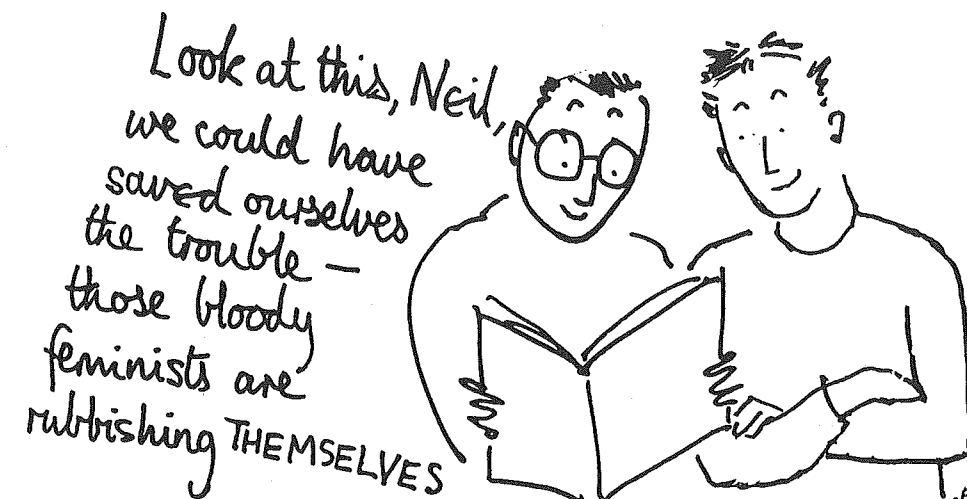 Look at this, Neil,
we could have
saved ourselves
the trouble –
those bloody
feminists are
rubbishing THEMSELVES